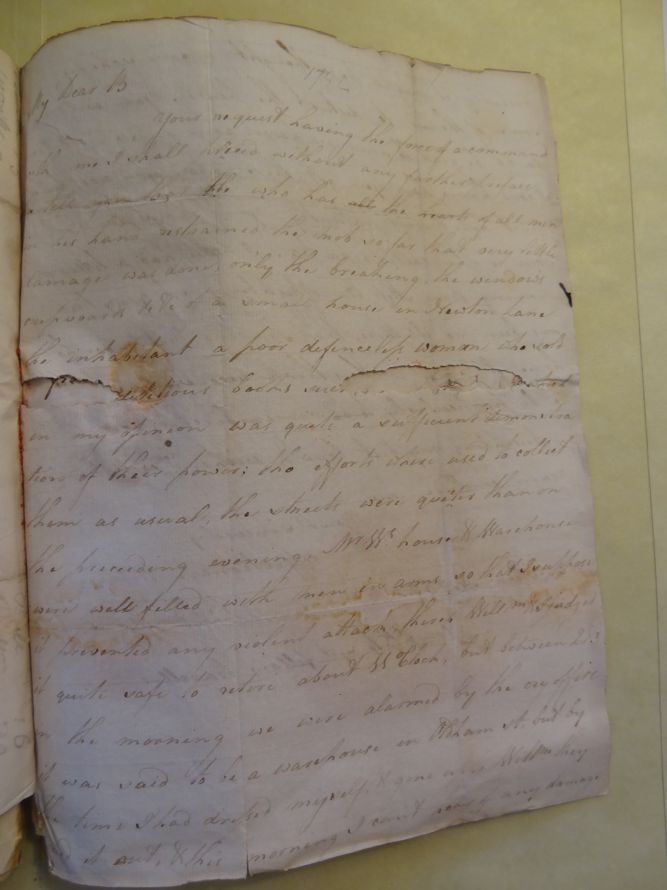 My Dear B
Your request having the force of a command
with me I shall precede without any farther preface
to tell you that he who has all the hearts of all men
in his hand restrained the mob so far that very little
damage was done, only the breaking the windows
cupboards &c &c of a small house in Newton Lane
the inhabitant a poor defenceless woman who sold
seditious books
in my opinion was quite a sufficient demonstra
tion of their power; tho efforts were used to collect
them as usual, the streets were quieter than on
the preceeding evening. Mr Ws house & Warehouse
were well filled with men in arms so that I suppose
it prevented any violent attack, theirs Willm judged
it quite safe to retire about 11 oClock, but between 2 & 3
in the morning we were alarmed by the cry of fire
it was said to be a warehouse in St. but by
the time I had dressed myself & gone Willm they
it out, & this morning I cant hear of any damage